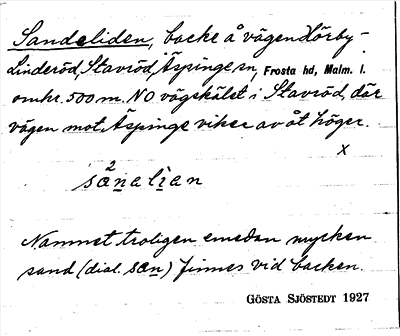 Sandeliden, backe å vägen Hörby-
Linderöd, Stavröd, Äspinge sn, Frosta hd, Malm. l.
omkr. 500 m. NO vägskälet i Stavröd, där
vägen mot Äspinge viker av åt höger.
x
2
sa̱ṉalìan
Namnet troligen emedan mycken
sand (dial. sa̱ṉ) finnes vid backen.
GÖSTA SJÖSTEDT 1927